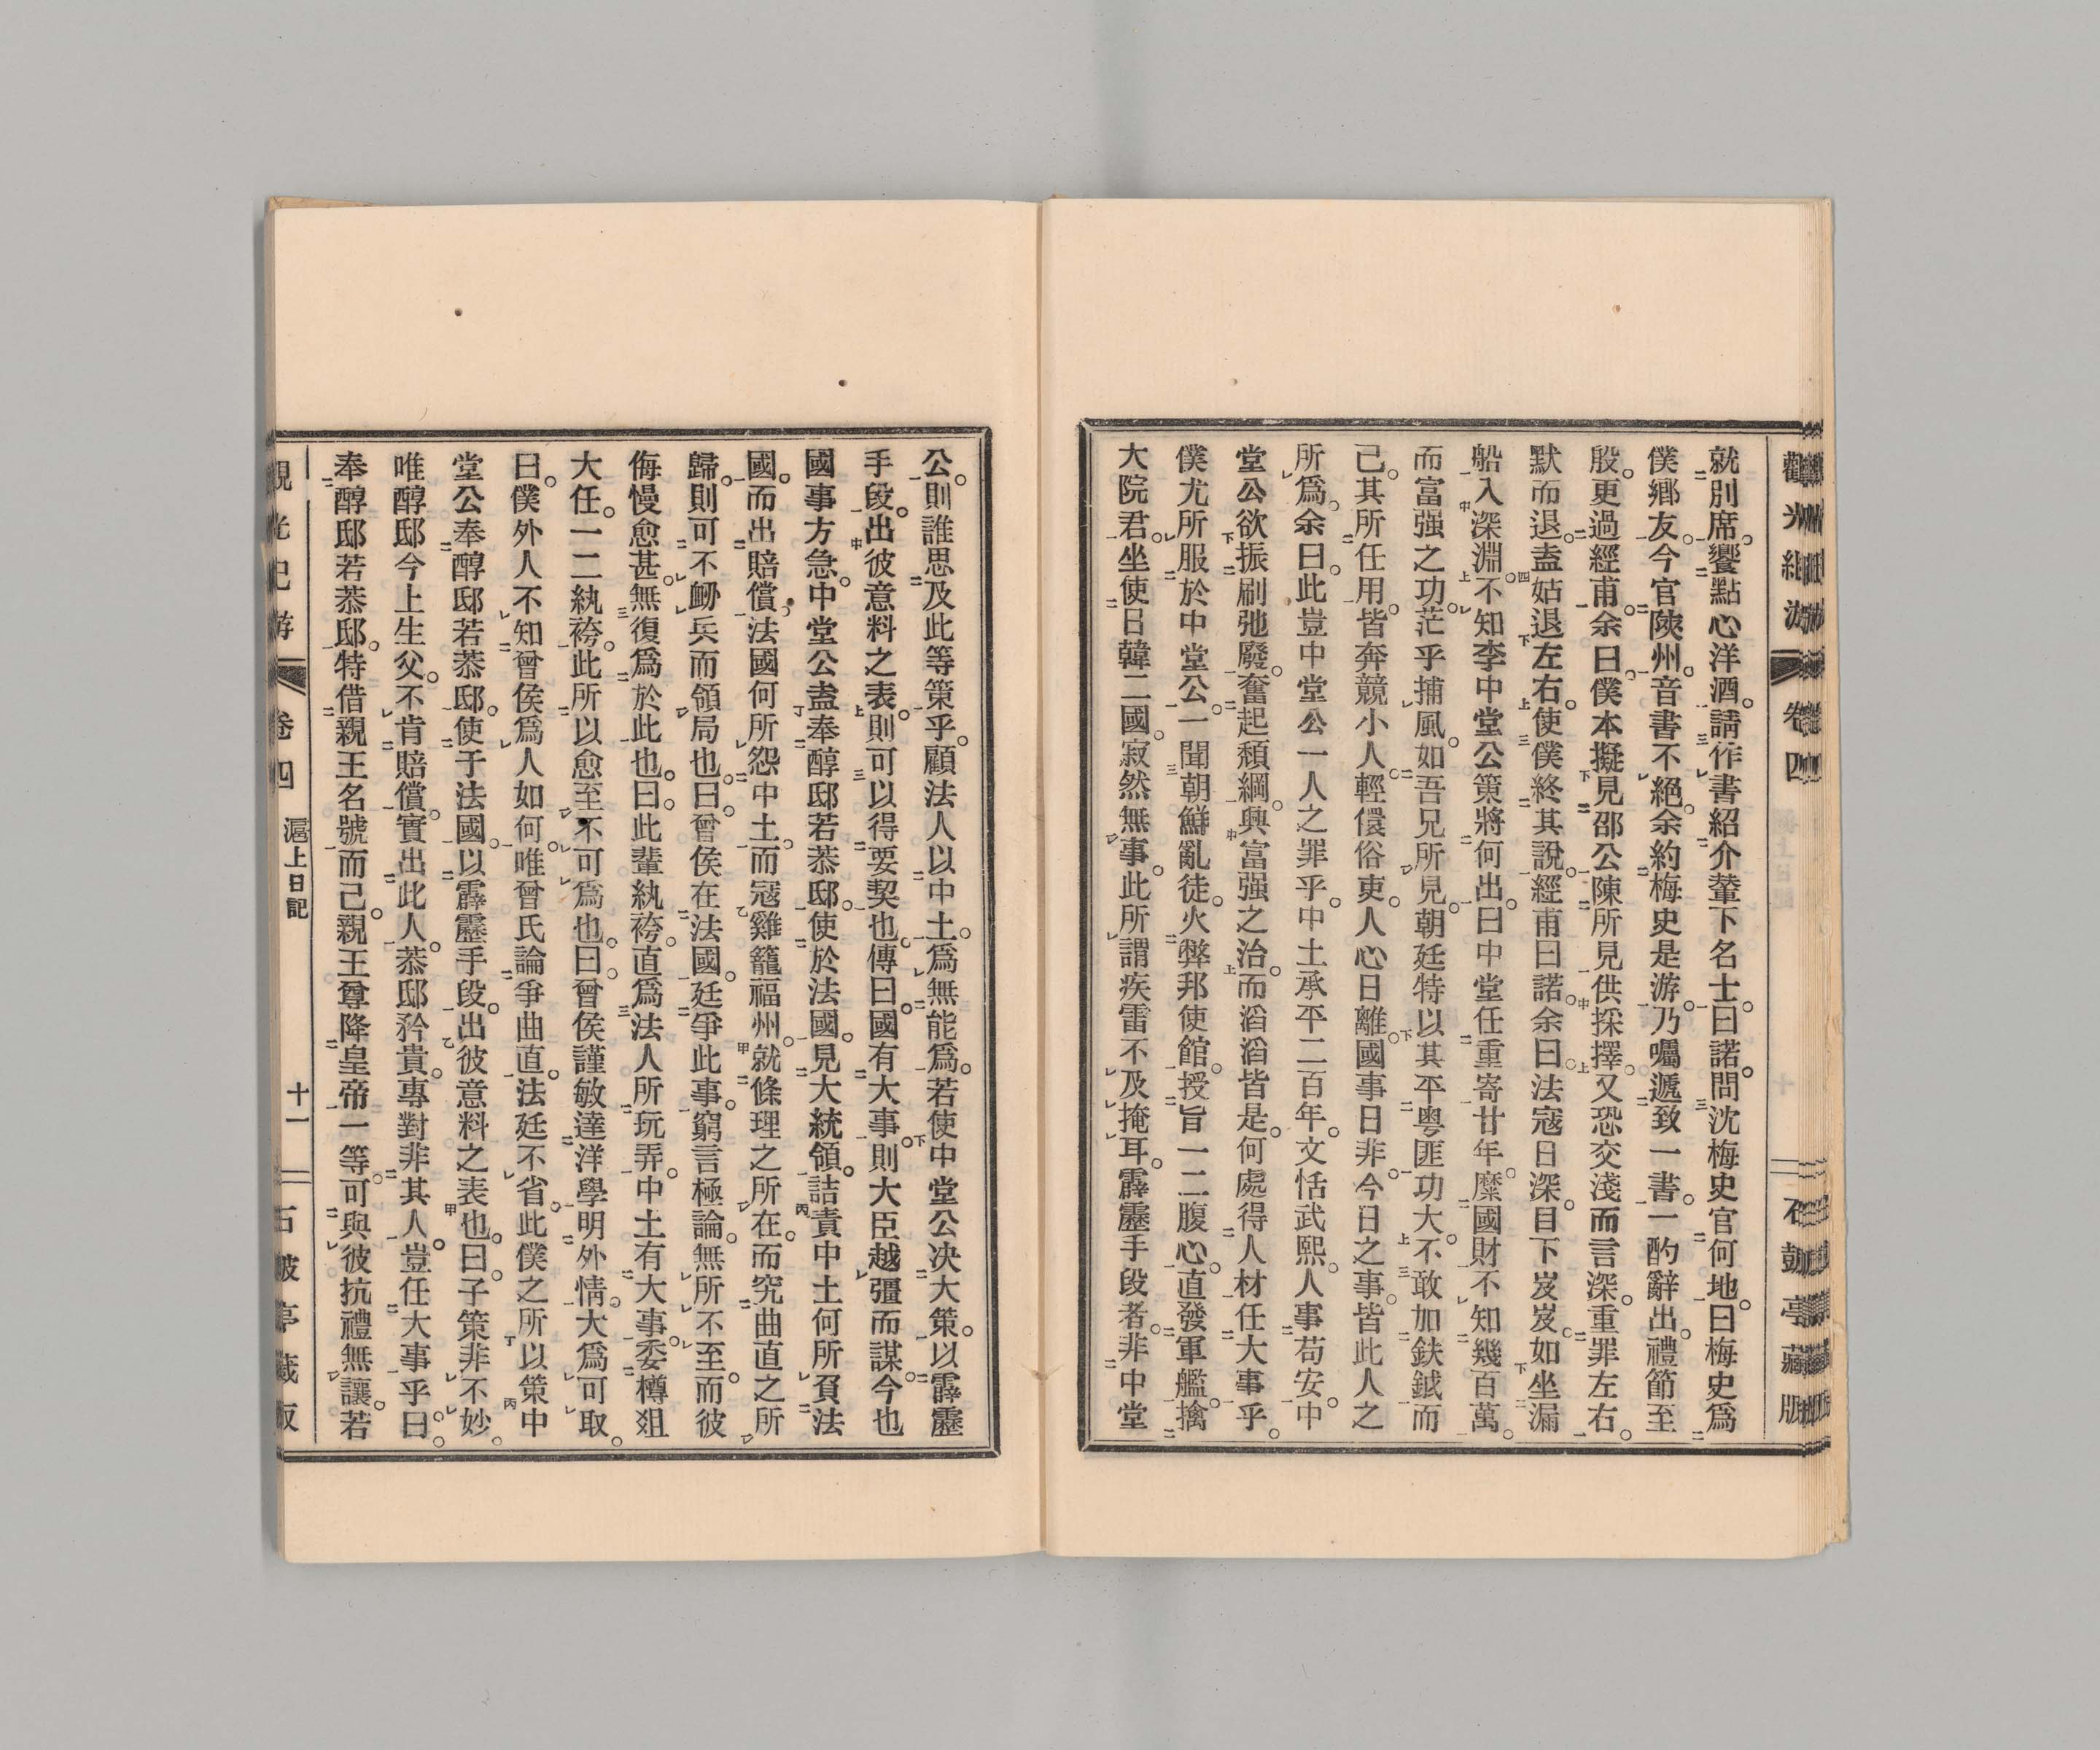 觀光紀游 卷四 石皷亭藏版
就別席。饗點心洋酒。請作書紹介輦下名士。曰諾。問沈梅史官何地。曰梅史爲
僕鄉友。今官陝州。音書不絕。余約梅史是游。乃囑遞致一書。一酌辭出。禮節至
殷。更過經甫。余曰。僕本擬見邵公陳所見供採擇。又恐交淺而言深。重罪左右。
默而退。盍姑退左右。使僕終其說。經甫曰諾。余曰。法寇日深。目下岌岌。如坐漏
船入深淵。不知李中堂公策將何出。曰中堂任重寄廿年。糜國財不知幾百萬。
而富强之功。茫乎捕風。如吾兄所見。朝廷特以其平粤匪功大。不敢加鈇鉞而
己。其所任用。皆奔競小人。輕儇俗吏。人心日離。國事日非。今日之事。皆此人之
所爲。余曰。此豈中堂公一人之罪乎。中土承平二百年。文恬武熙。人事苟安。中
堂公欲振刷弛廢。奮起頽綱。興富强之治。而滔滔皆是。何處得人材任大事乎。
僕尤所服於中堂公。一聞朝鮮亂徒。火弊邦使館。授旨一二腹心。直發軍艦。擒
大院君。坐使日韓二國。寂然無事。此所謂疾雷不及掩耳。霹靂手段者。非中堂
公。則誰思及此等策乎。顧法人以中土。爲無能爲。若使中堂公決大策。以霹靂
手段。出彼意料之表。則可以得要契也。傳曰。國有大事。則大臣越疆而謀。今也
國事方急。中堂公盍奉醇邸若恭邸。使於法國。見大統領。詰責中土何所負法
國。而出賠償。法國何所怨中土。而寇雞籠福州。就條理之所在。而究曲直之所
歸。則可不衂兵而領局也。曰。曾侯在法國。廷爭此事。窮言極論。無所不至。而彼
侮慢愈甚。無復爲於此也。曰。此輩紈袴。直爲法人所玩弄。中土有大事。委樽俎
大任。一二紈袴。此所以愈至不可爲也。曰。曾侯謹敏達洋學明外情。大爲可取。
曰。僕外人不知曾侯爲人如何。唯曾氏論爭曲直。法廷不省。此僕之所以策中
堂公奉醇邸若恭邸。使于法國。以霹靂手段。出彼意料之表也。曰。子策非不妙。
唯醇邸今上生父。不肯賠償。實出此人。恭邸矜貴。專對非其人。豈任大事乎。曰。
奉醇邸若恭邸。特借親王名號而己。親王尊降皇帝一等。可與彼抗禮無讓。若
觀光紀游 卷四 滬上日記 十一 石皷亭藏版